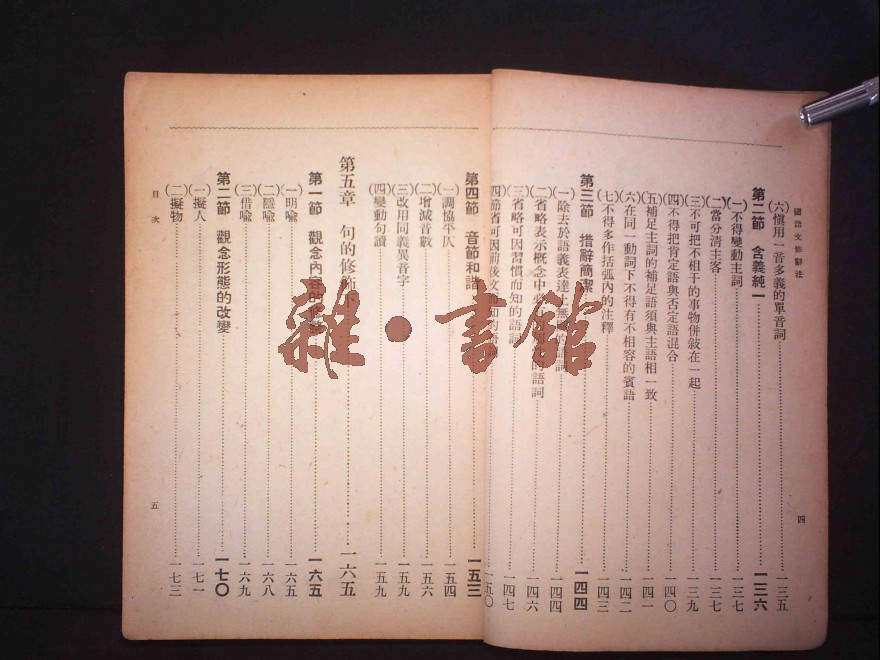 國語文修辭法
(六)愼用一音多義的單音詞 一三五
第二節 含義純一 一三六
(一)不得變動主詞 一三七
(二)當分清主客 一三七
(三)不可把不相干的事物併敍在一起 一三九
(四)不得把肯定語與否定語混合 一四〇
(五)補足主詞的補足語須與主語相一致 一四一
(六)在同一動詞下不得有不相容的賓語 一四二
(七)不得多作括弧內的注釋 一四三
第三節 措辭簡潔 一四四
(一)除去於語義表達上無 詞 一四四
(二)省略表示概念中必 的語詞 一四六
(三)省略可因習慣而知的語詞 一四七
(四)節省可因前後文而知的語 一五〇
四
第四節 音節和諧 一五三
(一)調協平仄 一五四
(二)增減音數 一五六
(三)改用同義異音字 一五九
(四)變動句讀 一五九
第五章 句的修飾 一六五
第一節 觀念內容的 一六五
(一)明喩 一六五
(二)隱喩 一六八
(三)借喩 一六九
第二節 觀念形態的改變 一七〇
(一)擬人 一七一
(二)擬物 一七三
目次
五
雜·書館